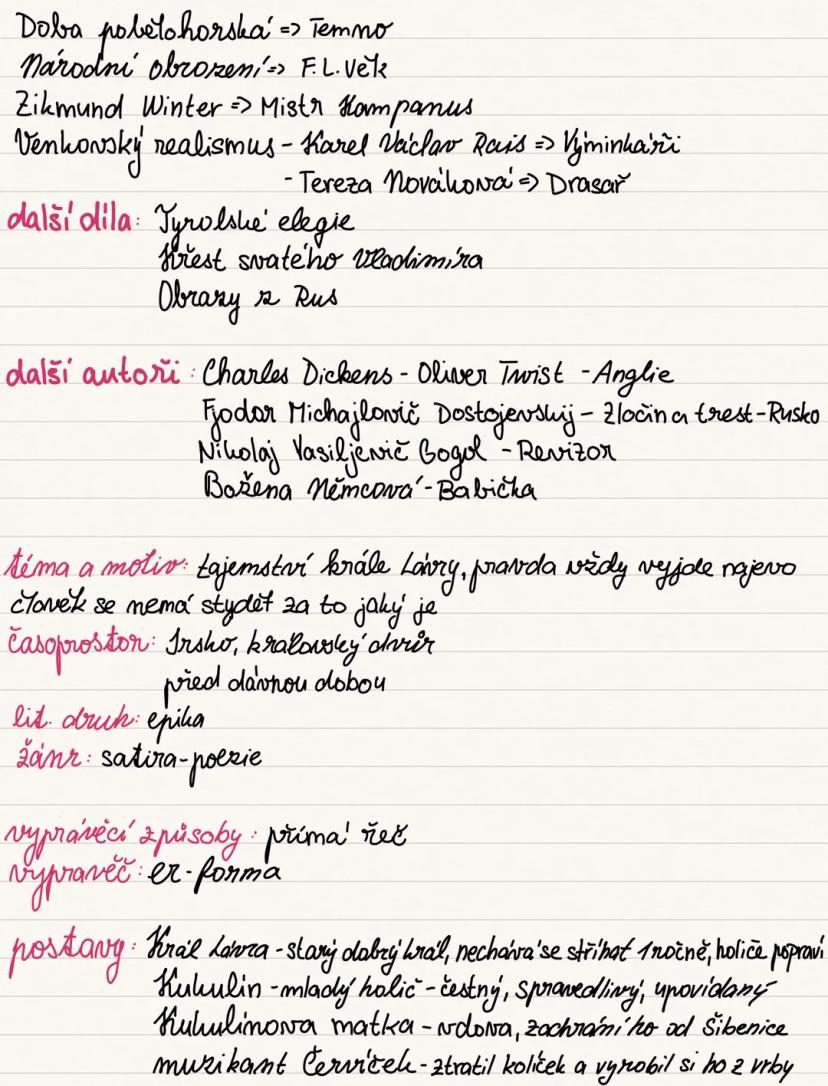 Doba pobělohorská => Temno
Národní obrození => F.L.Věk
Zikmund Winter => Mistr Kampanus
Venkovský realismus - Karel Václav Rais => Výminkáři
- Tereza Nováková => Drašar
další díla: Tyrolské elegie
Křest svatého Vladimíra
Obrazy z Rus
další autoři: Charles Dickens - Oliver Twist - Anglie
Fjodor Michajlovič Dostojevskij - Zločin a trest - Rusko
Nikolaj Vasiljevič Gogol - Revizor
Božena Němcová - Babička
téma a motiv: tajemství krále Lávry, pravda vždy vyjde najevo
člověk se nemá stydět za to jaký je
časoprostor: Irsko, královský dvůr
před dávnou dobou
lit. druh: epika
žánr: satira-poezie
vyprávěcí způsoby: přímá řeč
vypravěč: er-forma
postavy: Král Lávra - starý dobrý král, nechává se stříhat 1 ročně, holiče popraví
Kukulín - mladý holič - čestný, spravedlivý, upovídaný
Kukulínova matka - vdova, zachrání ho od šibenice
muzikant Červíček - ztratil kolíček a vyrobil si ho z vrby